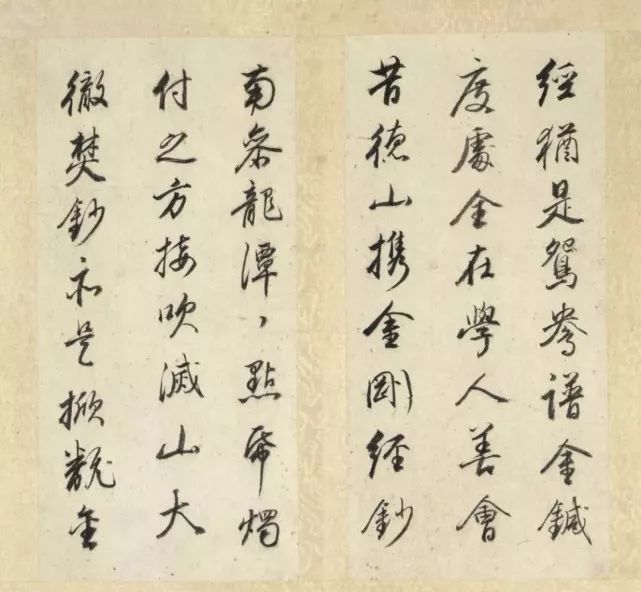 經猶是鴛鴦譜金鍼
度處全在學人善會
昔德山携金剛經鈔
南參龍潭、點紙燭
付之方接吹滅山大
徹焚鈔亦是掀翻金